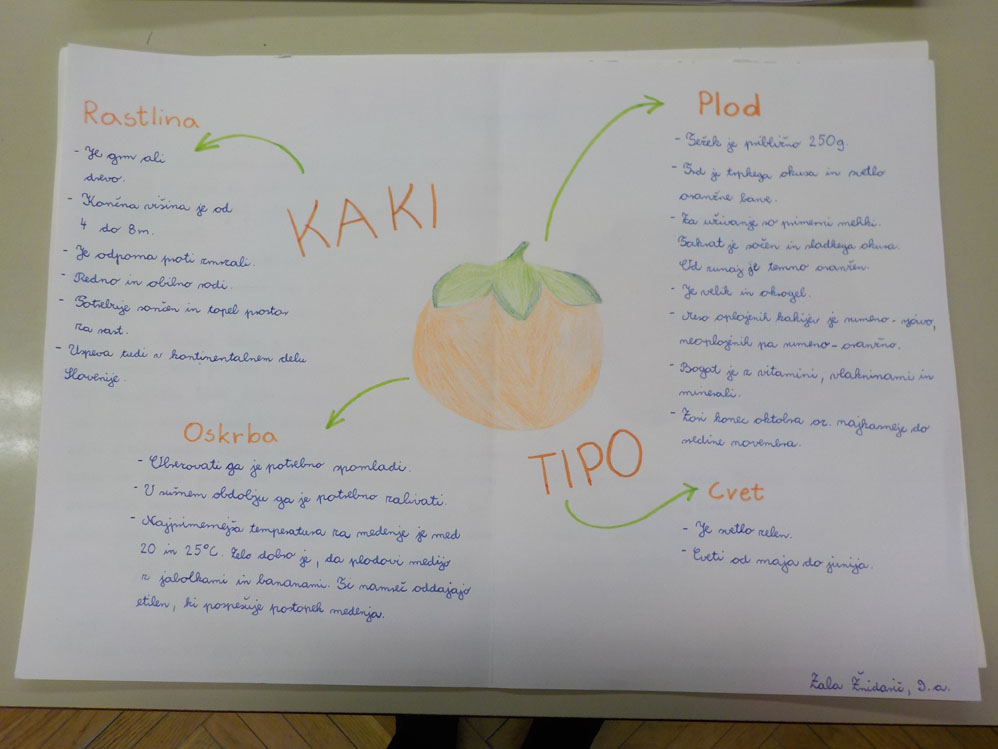 Rastlina
- Je grm ali
drevo.
- Končna višina je od
4 do 8m.
- Je odporna proti zmrzali.
- Redno in obilno rodi.
- Potrebuje sončen in topel prostor
za rast.
- Uspeva tudi v kontinentalnem delu
Slovenije.
KAKI
TIPO
Oskrba
- Obrezovati ga je potrebno spomladi.
- V sušnem obdobju ga je potrebno zalivati.
- Najprimernejša temperatura za medenje je med
20 in 25°C. Zelo dobro je, da plodovi medijo
z jabolkami in bananami. Ti namreč oddajajo
etilen, ki pospešuje postopek medenja.
Plod
- Težek je približno 250g.
- Trd je trpkega okusa in svetlo
oranžne barve.
- Za uživanje so primerni mehki.
Takrat je sočen in sladkega okusa.
Od zunaj je temno oranžen.
- Je velik in okrogel.
- Meso oplojenih kakijev je rumeno-rjavo,
neoplojenih pa rumeno-oranžno.
- Bogat je z vitamini, vlakninami in
minerali.
- Zori konec oktobra oz. najkasneje do
sredine novembra.
Cvet
- Je svetlo zelen.
- Cveti od maja do junija.
Zala Žnidarič, 9.a.